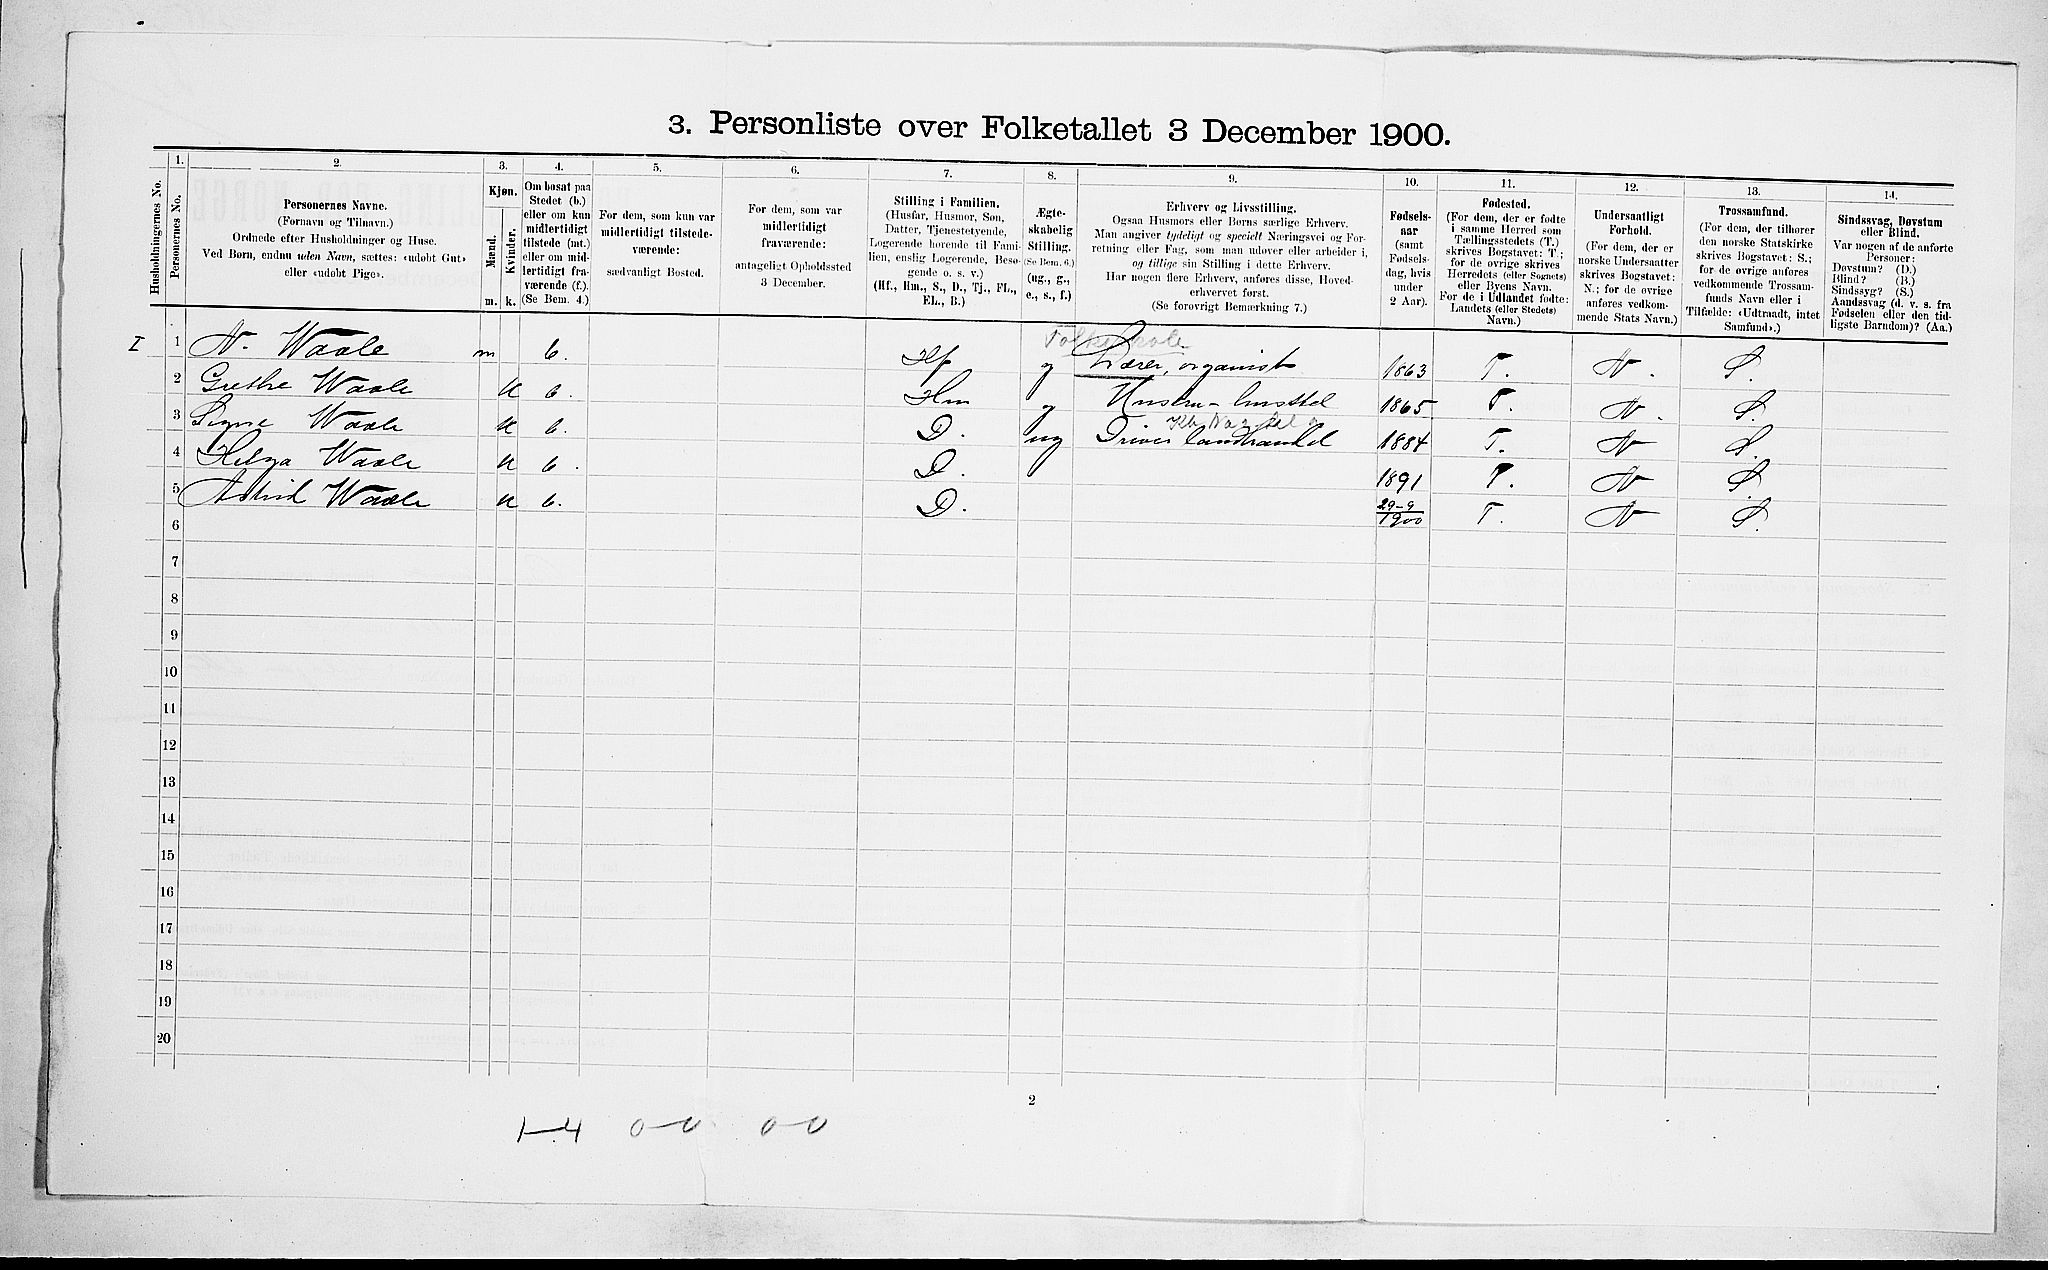 3. Personliste over Folketallet 3 December 1900.
Husholdningernes No.
1.
Personernes No.
2.
Personernes Navne.
(Fornavn og Tilnavn.)
Ordnede efter Husholdninger og Huse.
Ved Børn, endnu uden Navn, sættes: «udøbt Gut»
eller «udøbt Pige».
3.
Kjøn.
Mænd.
Kvinder.
m. k.
4.
Om bosat paa
Stedet (b.)
eller om kun
midlertidigt
tilstede (mt.)
eller om mid-
lertidigt fra-
værende (f.).
(Se Bem. 4.)
5.
For dem, som kun var
midlertidigt tilstede-
værende:
sædvanligt Bosted.
6.
For dem, som var
midlertidigt
fraværende:
antageligt Opholdssted
3 December.
7.
Stilling i Familien.
(Husfar, Husmor, Søn,
Datter, Tjenestetyende,
Logerende hørende til Fami-
lien, enslig Logerende, Besø-
gende o. s. v.)
(Hf., Hm., S., D., Tj., FL.,
EL., B.)
8.
Ægte-
skabelig
Stilling.
(Se Bem. 6.)
(ug., g.,
e., s., f.)
9.
Erhverv og Livsstilling.
Ogsaa Husmors eller Børns særlige Erhverv.
Man angiver tydeligt og specielt Næringsvei og For-
retning eller Fag, som man udøver eller arbeider i,
og tillige sin Stilling i dette Erhverv.
Har nogen flere Erhverv, anføres disse, Hoved-
erhvervet først.
(Se forøvrigt Bemærkning 7.)
10.
Fødsels-
aar
(samt
Fødsels-
dag, hvis
under
2 Aar).
11.
Fødested.
(For dem, der er fødte
i samme Herred som
Tællingsstedets (T.)
skrives Bogstavet: T.;
for de øvrige skrives
Herredets (eller Sognets)
eller Byens Navn.
For de i Udlandet fødte:
Landets (eller Stedets)
Navn.)
12.
Undersaatligt
Forhold.
(For dem, der er
norske Undersaatter
skrives Bogstavet:
N.; for de øvrige
anføres vedkom-
mende Stats Navn.)
13.
Trossamfund.
(For dem, der tilhører
den norske Statskirke
skrives Bogstavet: S.;
for de øvrige anføres
vedkommende Trossam-
funds Navn eller i
Tilfælde: «Udtraadt, intet
Samfund».)
14.
Sindssvag, Døvstum
eller Blind.
Var nogen af de anførte
Personer:
Døvstum? (D.)
Blind? (B.)
Sindssyg? (S.)
Aandssvag (d. v. s. fra
Fødselen eller den tid-
ligste Barndom)? (Aa.)
Folkeskole
I 1 N. Waale m b. Hf g Lærer, organist 1863 T. N. S.
2 Grethe Waale k b. Hm g Hustru - husstel 1865 T. N. S.
3 Signe Waale k b. D. ug Driver landhandel 1884 T. N S.
4 Helga Waale k b. D. 1891 T. N S.
5 Astrid Waale k b. D. 29-9 1900 T. N S.
6
7
8
9
10
11
12
13
14
15
16
17
18
19
20
2
1-4 0-0 0-0